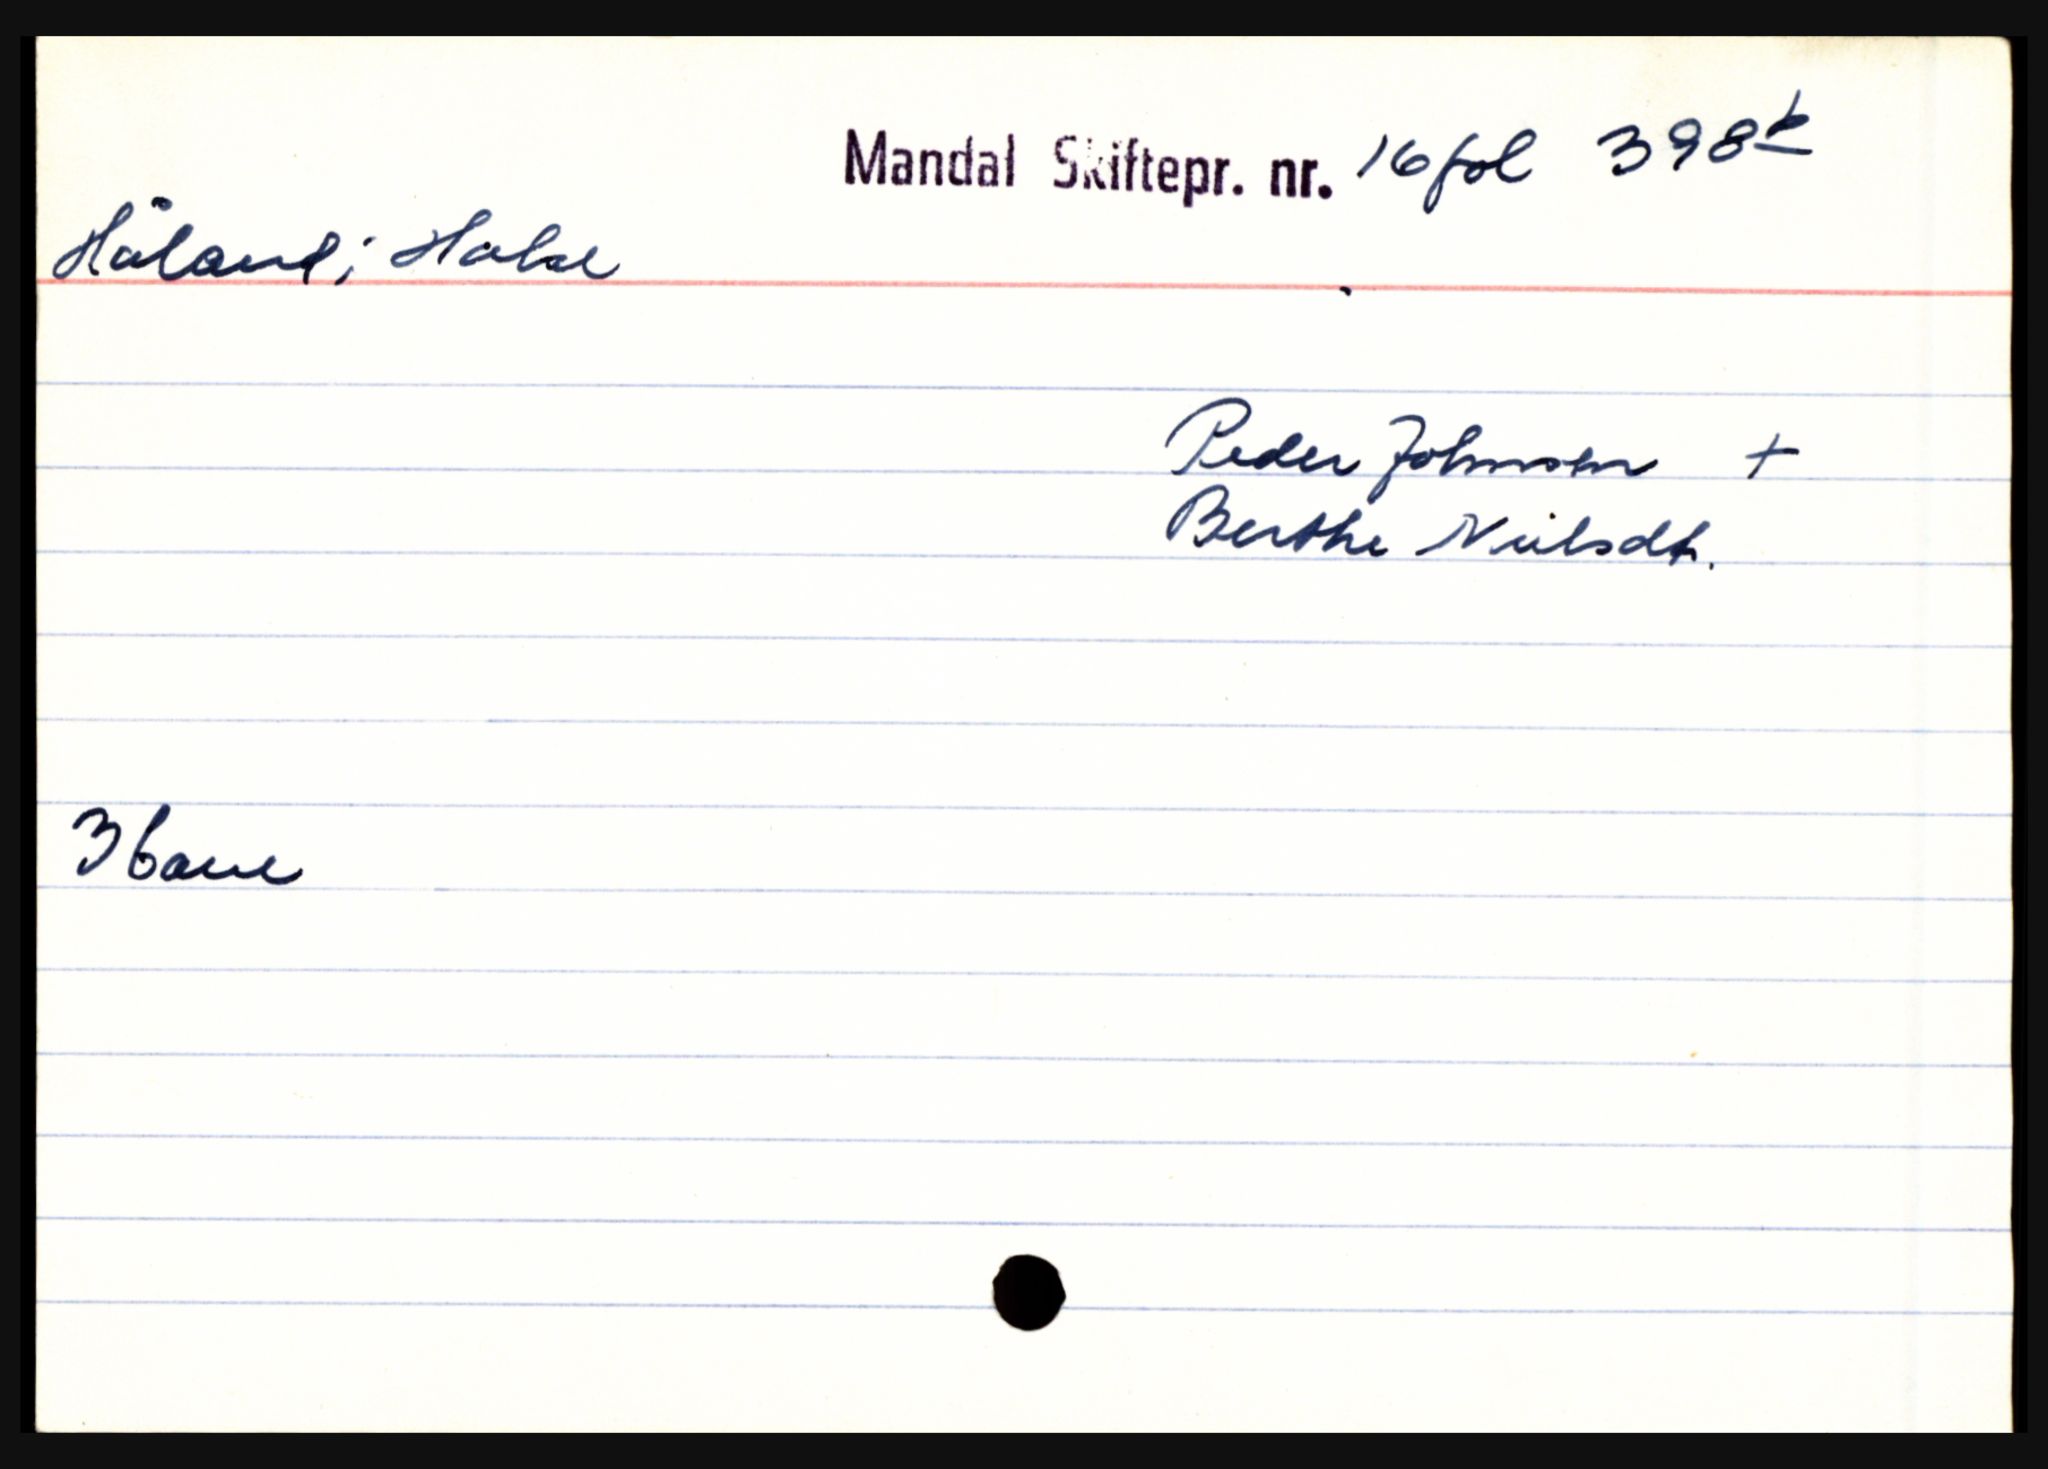 Mandal Skiftepr. nr. 16 fol 398b
Håland; Halse
Peder Johnsen +
Berthe Nielsdt.
3 barn